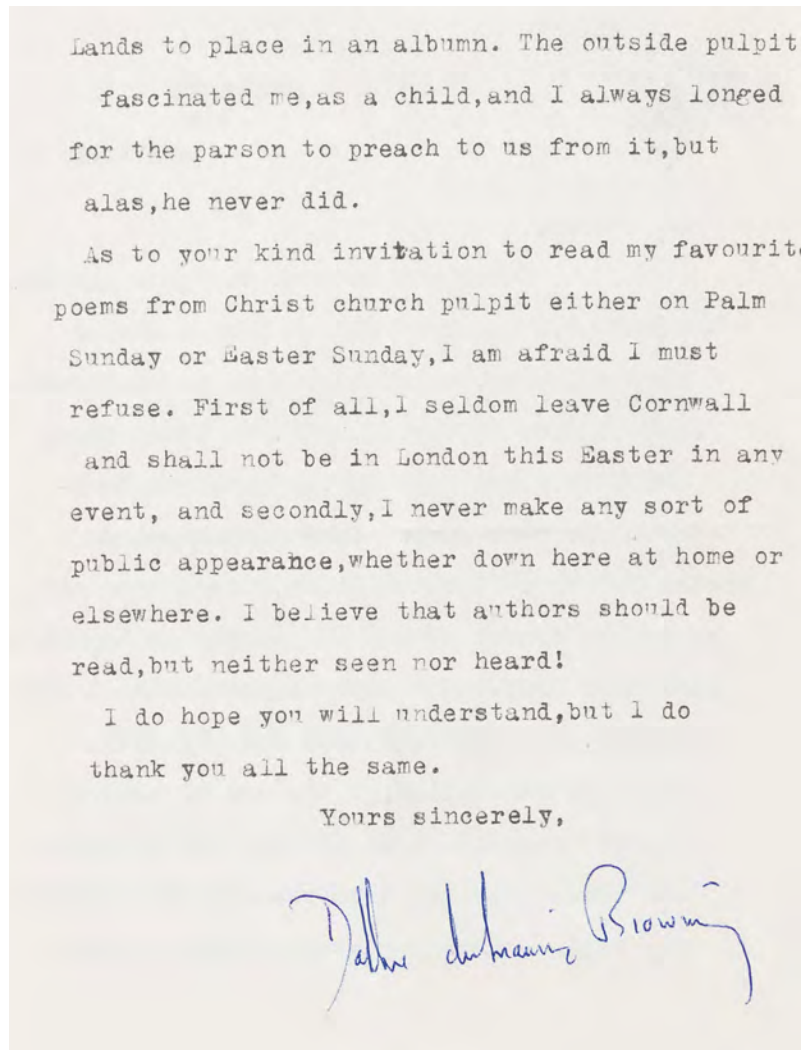 Lands to place in an albumn. The outside pulpit
fascinated me,as a child,and I always longed
for the parson to preach to us from it,but
alas,he never did.
As to your kind invitation to read my favourite
poems from Christ church pulpit either on Palm
Sunday or Easter Sunday,I am afraid I must
refuse. First of all,I seldom leave Cornwall
and shall not be in London this Easter in any
event, and secondly,I never make any sort of
public appearance,whether down here at home or
elsewhere. I believe that authors should be
read,but neither seen nor heard!
I do hope you will understand,but I do
thank you all the same.
Yours sincerely,
Daphne du Maurier Browning